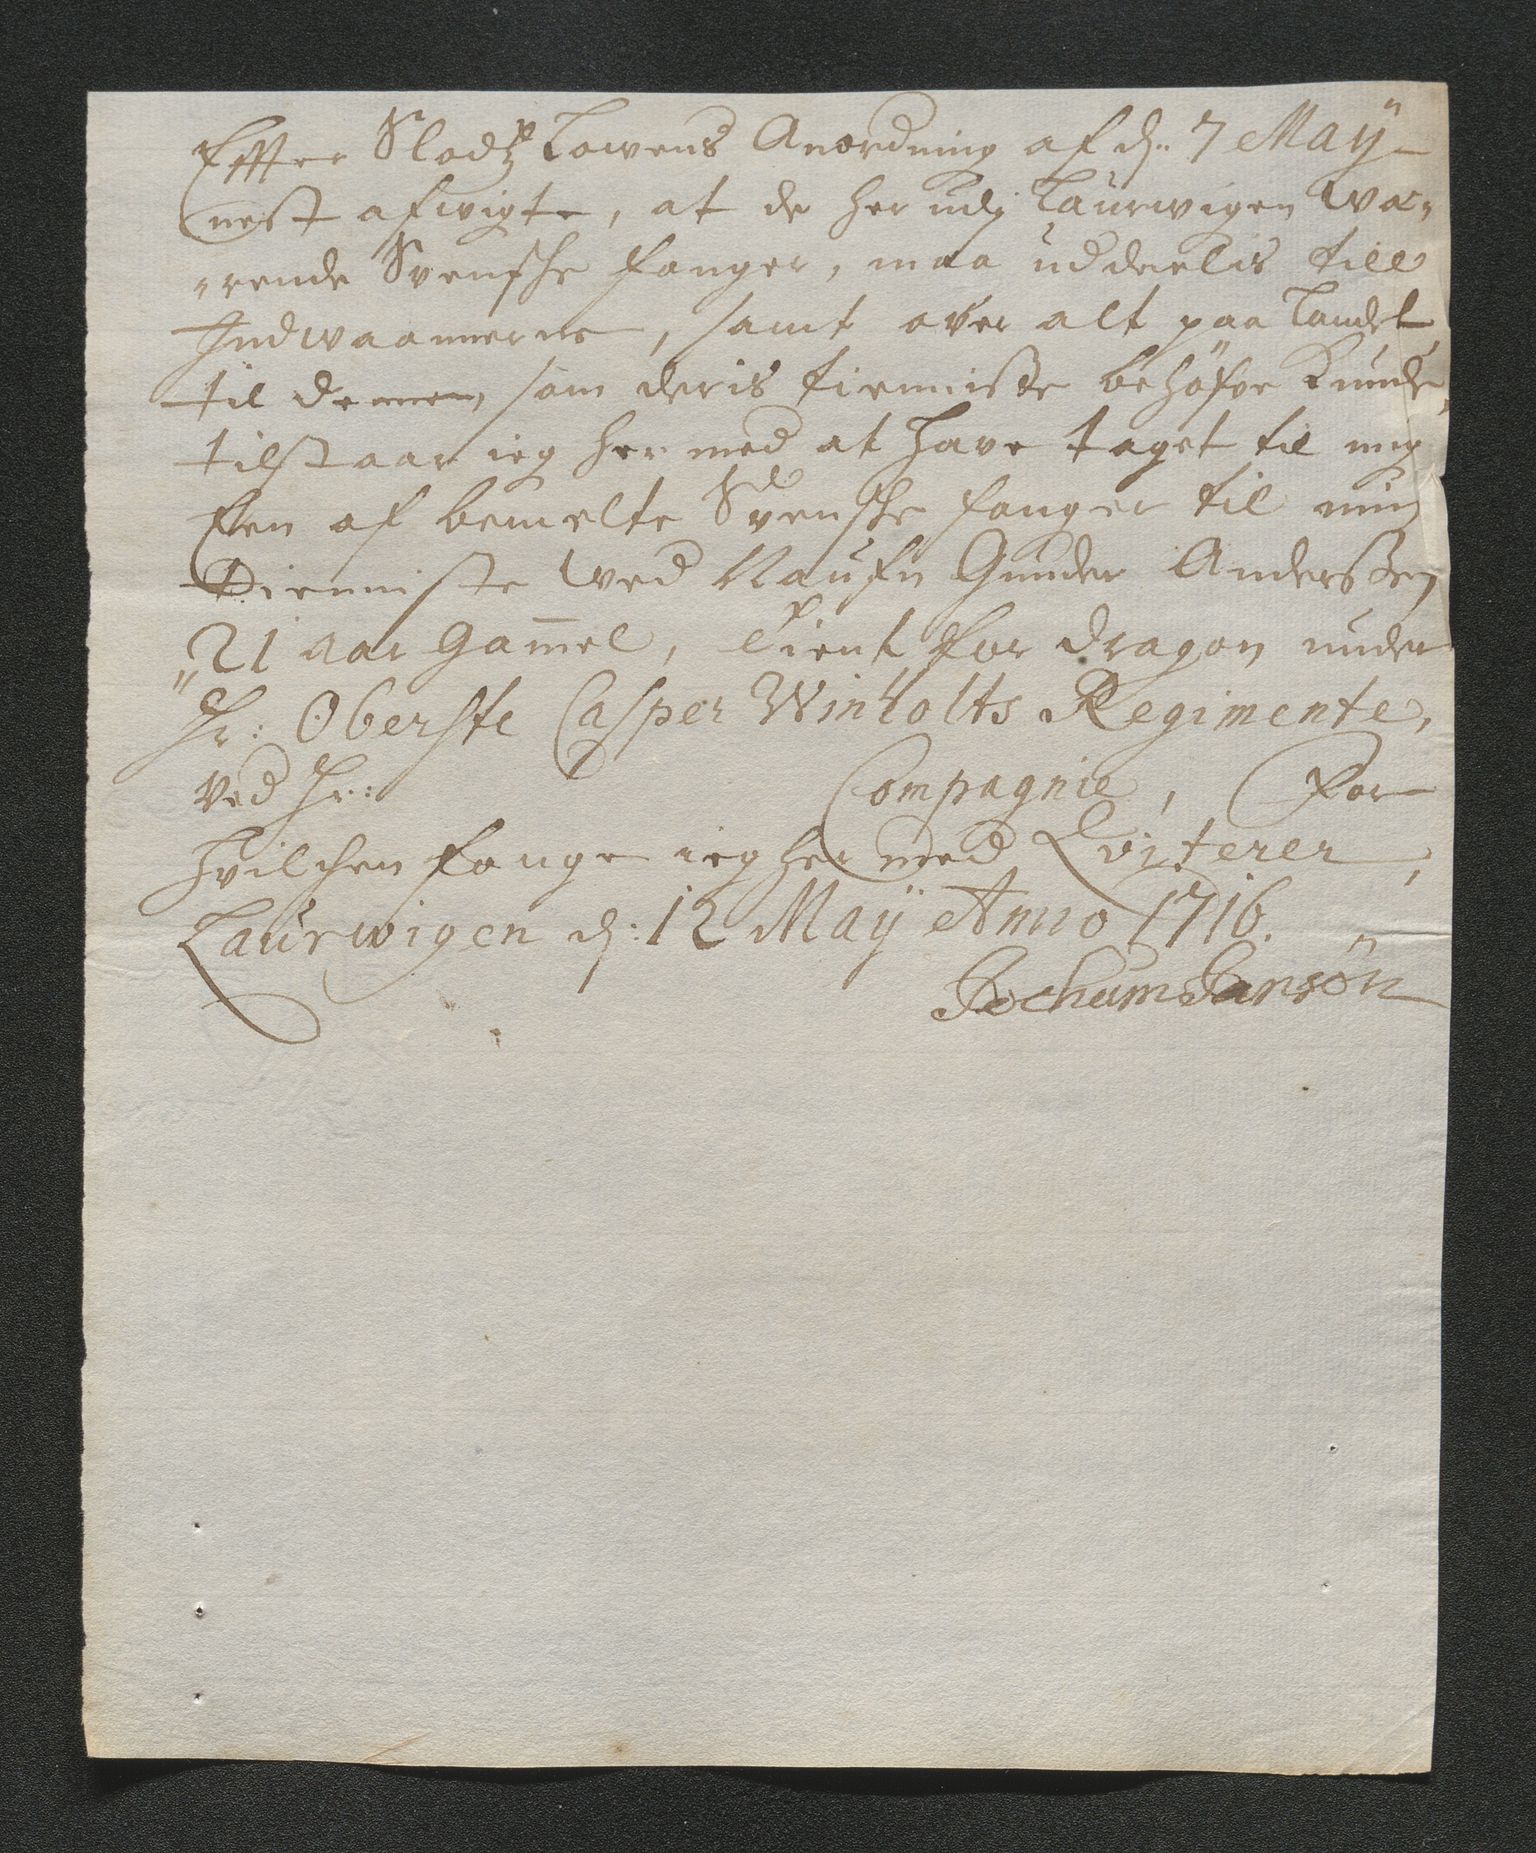 Effter Slodtz Lowens Anordning af d: 7 Maÿ
nest afvigte, at de her udj Laurwigen wæ-
rende Svenske fanger, maa uddeelis till
Indwaanerne, samt over alt paa Landet
til dennem, som deris tienniste behöfve Kunde,
tilstaar ieg her med at have taget til mig
Een af bemelte Svenske fanger til min
Tienniste ved Naufn Gunder Anderssen
21 aar Gam̄el, Tient for dragon under
Hr: Oberste Casper Winholts Regimente,
Ved Hr: Compagnie, For
hvilchen fange ieg her med Qviterer,
Laurwigen d: 12 Maÿ Anno 1716.
Jochum Jansön